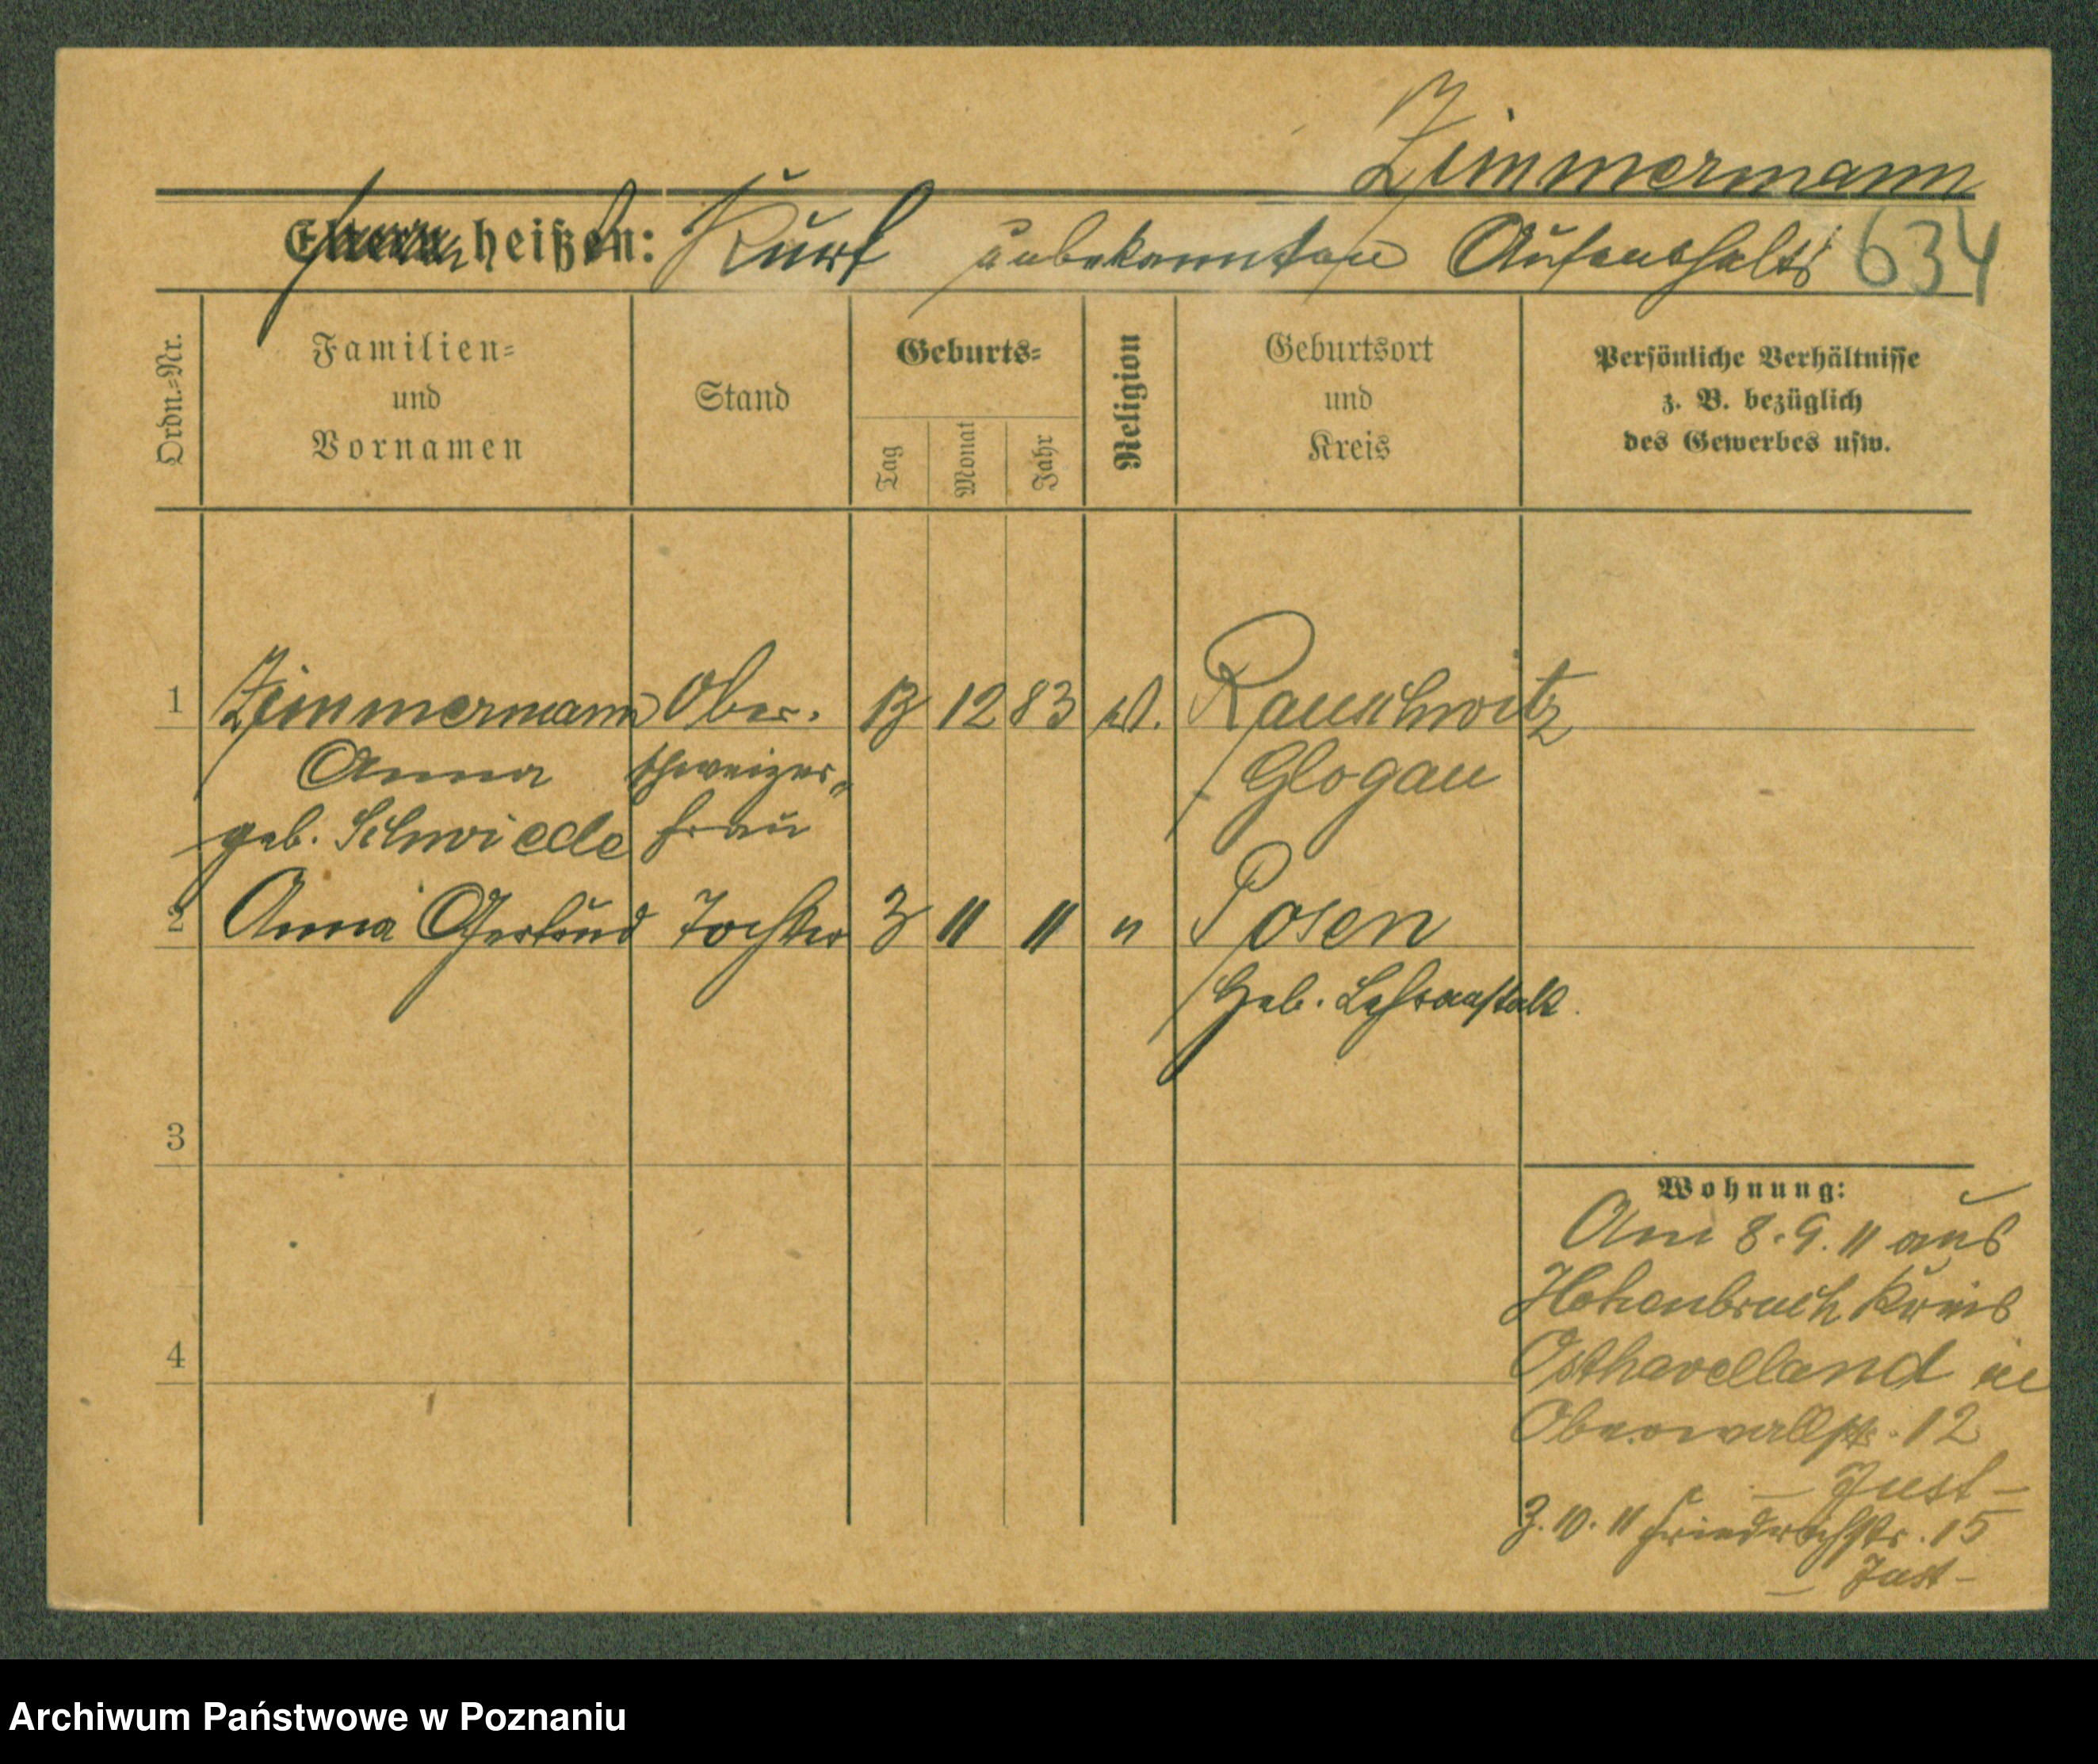 Zimmermann
Eltern heißen: Kurt unbekannten Aufenthalts 634
Ordn.-Nr.
Familien-
und
Vornamen
Stand
Geburts-
Tag
Monat
Jahr
Religion
Geburtsort
und
Kreis
Persönliche Verhältnisse
z. B. bezüglich
des Gewerbes usw.
1 Zimmermann Ober- 13 12 83 Rauschwitz
Anna schweizer-
Glogau
geb. Schwiede frau
2 Anna Gertrud Tochter 3 11 11 " Posen
Heb. Lehranstalt.
3
4
Wohnung:
Am 8.9.11 aus
Hohenbruch Kreis
Osthavelland in
Oberwallstr. 12
– Just –
3.10.11 Friedrichstr. 15
– Just –
Archiwum Państwowe w Poznaniu